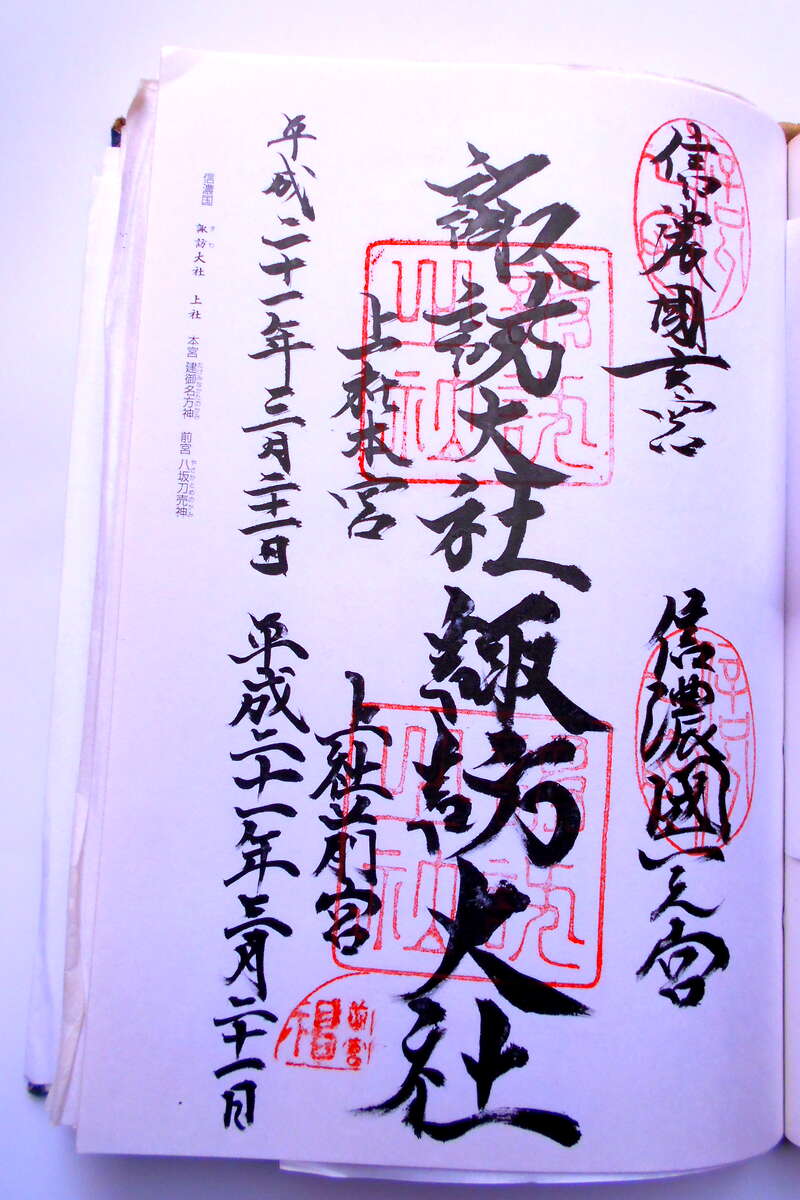 信濃國一之宮
諏訪大社
上社本宮
平成二十一年三月二十一日
信濃國一之宮
諏訪大社
上社前宮
平成二十一年三月二十一日
諏訪大社
諏訪大社
前宮
信濃国 諏訪大社 上社 本宮 建御名方神 前宮 八坂刀売神